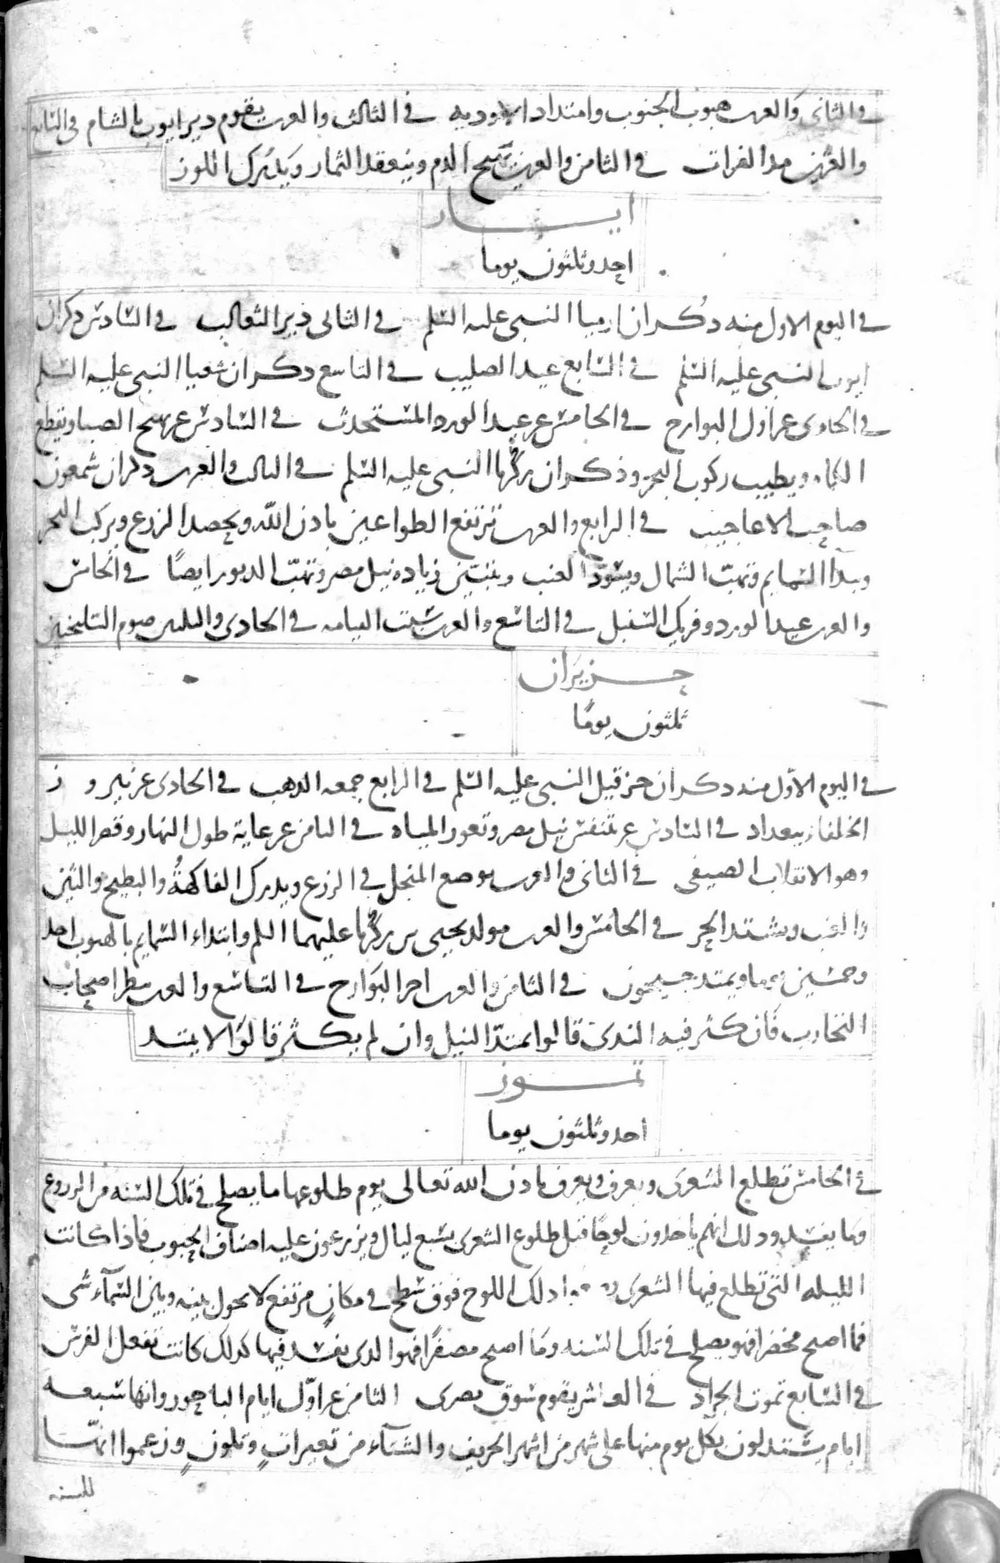 في الثاني والعشرين هبوب الجنوب وامتداد الاودية في الثالث والعشرين يقوم دير ايوب بالشام في السابع
والعشرين مد الفرات في الثامن والعشرين يهيج الدم وينعقد الثمار ويدرك اللوز
ايار
احد وثلثون يوما
في اليوم الاول منه ذكران ارميا النبي عليه السلم في الثاني دير الثعالب في السادس ذكران
ايوب النبي عليه السلم في السابع عيد الصليب في التاسع ذكران شعيا النبي عليه السلم
في الحادي عشر اول البوارح في الخامس عشر عيد الورد المستحدث في السادس عشر يهيج الصبا وتقطع
الكماه ويطيب ركوب البحر وذكران زكريا النبي عليه السلم في الثالث والعشرين ذكران شمعون
صاحب الاعاجيب في الرابع والعشرين ترتفع الطواعين باذن الله ويحصد الزرع ويركب البحر
وبدا السمايم وتهب الشمال ويسود العنب ويتبين زيادة نيل مصر وتهب الدبور ايضًا في الخامس
والعشرين عيد الورد وفريك السنبل في التاسع والعشرين سبت القيامه في الحادي والثلثين صوم السليحين
حزيران
ثلثون يومًا
في اليوم الاول منه ذكران حزقيل النبي عليه السلم في الرابع جمعه الذهب في الحادي عشر نيروز
الخلفاء ببغداد في السادس عشر تنفس نيل مصر وتغور المياه في الثامن عشر غاية طول النهار وقصر الليل
وهو الانقلاب الصيفي في الثاني والعشرين يوضع المنجل في الزرع ويدرك الفاكهةُ والبطيخ والتين
والعنب ويشتد الحر في الخامس والعشرين مولد يحيى بن زكريا عليهما السلم وابتداء السمايم بالهبوب احد
وخمسين يوما ويمتد جيحون في الثامن والعشرين اخر البوارح في التاسع والعشرين ينظر اصحاب
التجارب فان كثر فيه الندى قالوا يمتد النيل وان لم يكثر قالوا لا يمتد
تموز
احد وثلثون يوما
في الخامس تطلع الشعرى ويعرف باذن الله تعالى يوم طلوعها ما يصلح في تلك السنة من الزروع
وما يفسد وذلك انهم ياخذون لوحًا قبل طلوع الشعرى بسبع ليال ويزرعون عليه اصناف الحبوب فاذا كانت
الليله التي تطلع فيها الشعرى ذلك اللوح فوق سطح في مكانٍ مرتفع لا يحول بينه وبين السمآء شى
فما اصبح مخضرا فهو يصلح في تلك السنه وما اصبح مصفرًا فهو الذي يفسد فيها كذلك كانت تفعل الفرس
في السابع تموت الجراد في العاشر يقوم سوق بصرى الثامن عشر اوّل ايام الباحور وانها سبعه
ايام يستدلون بكل يوم منها على شهر من اشهر الخريف والشتآء من تغيراتٍ وتلونٍ وزعموا انها
للسنه